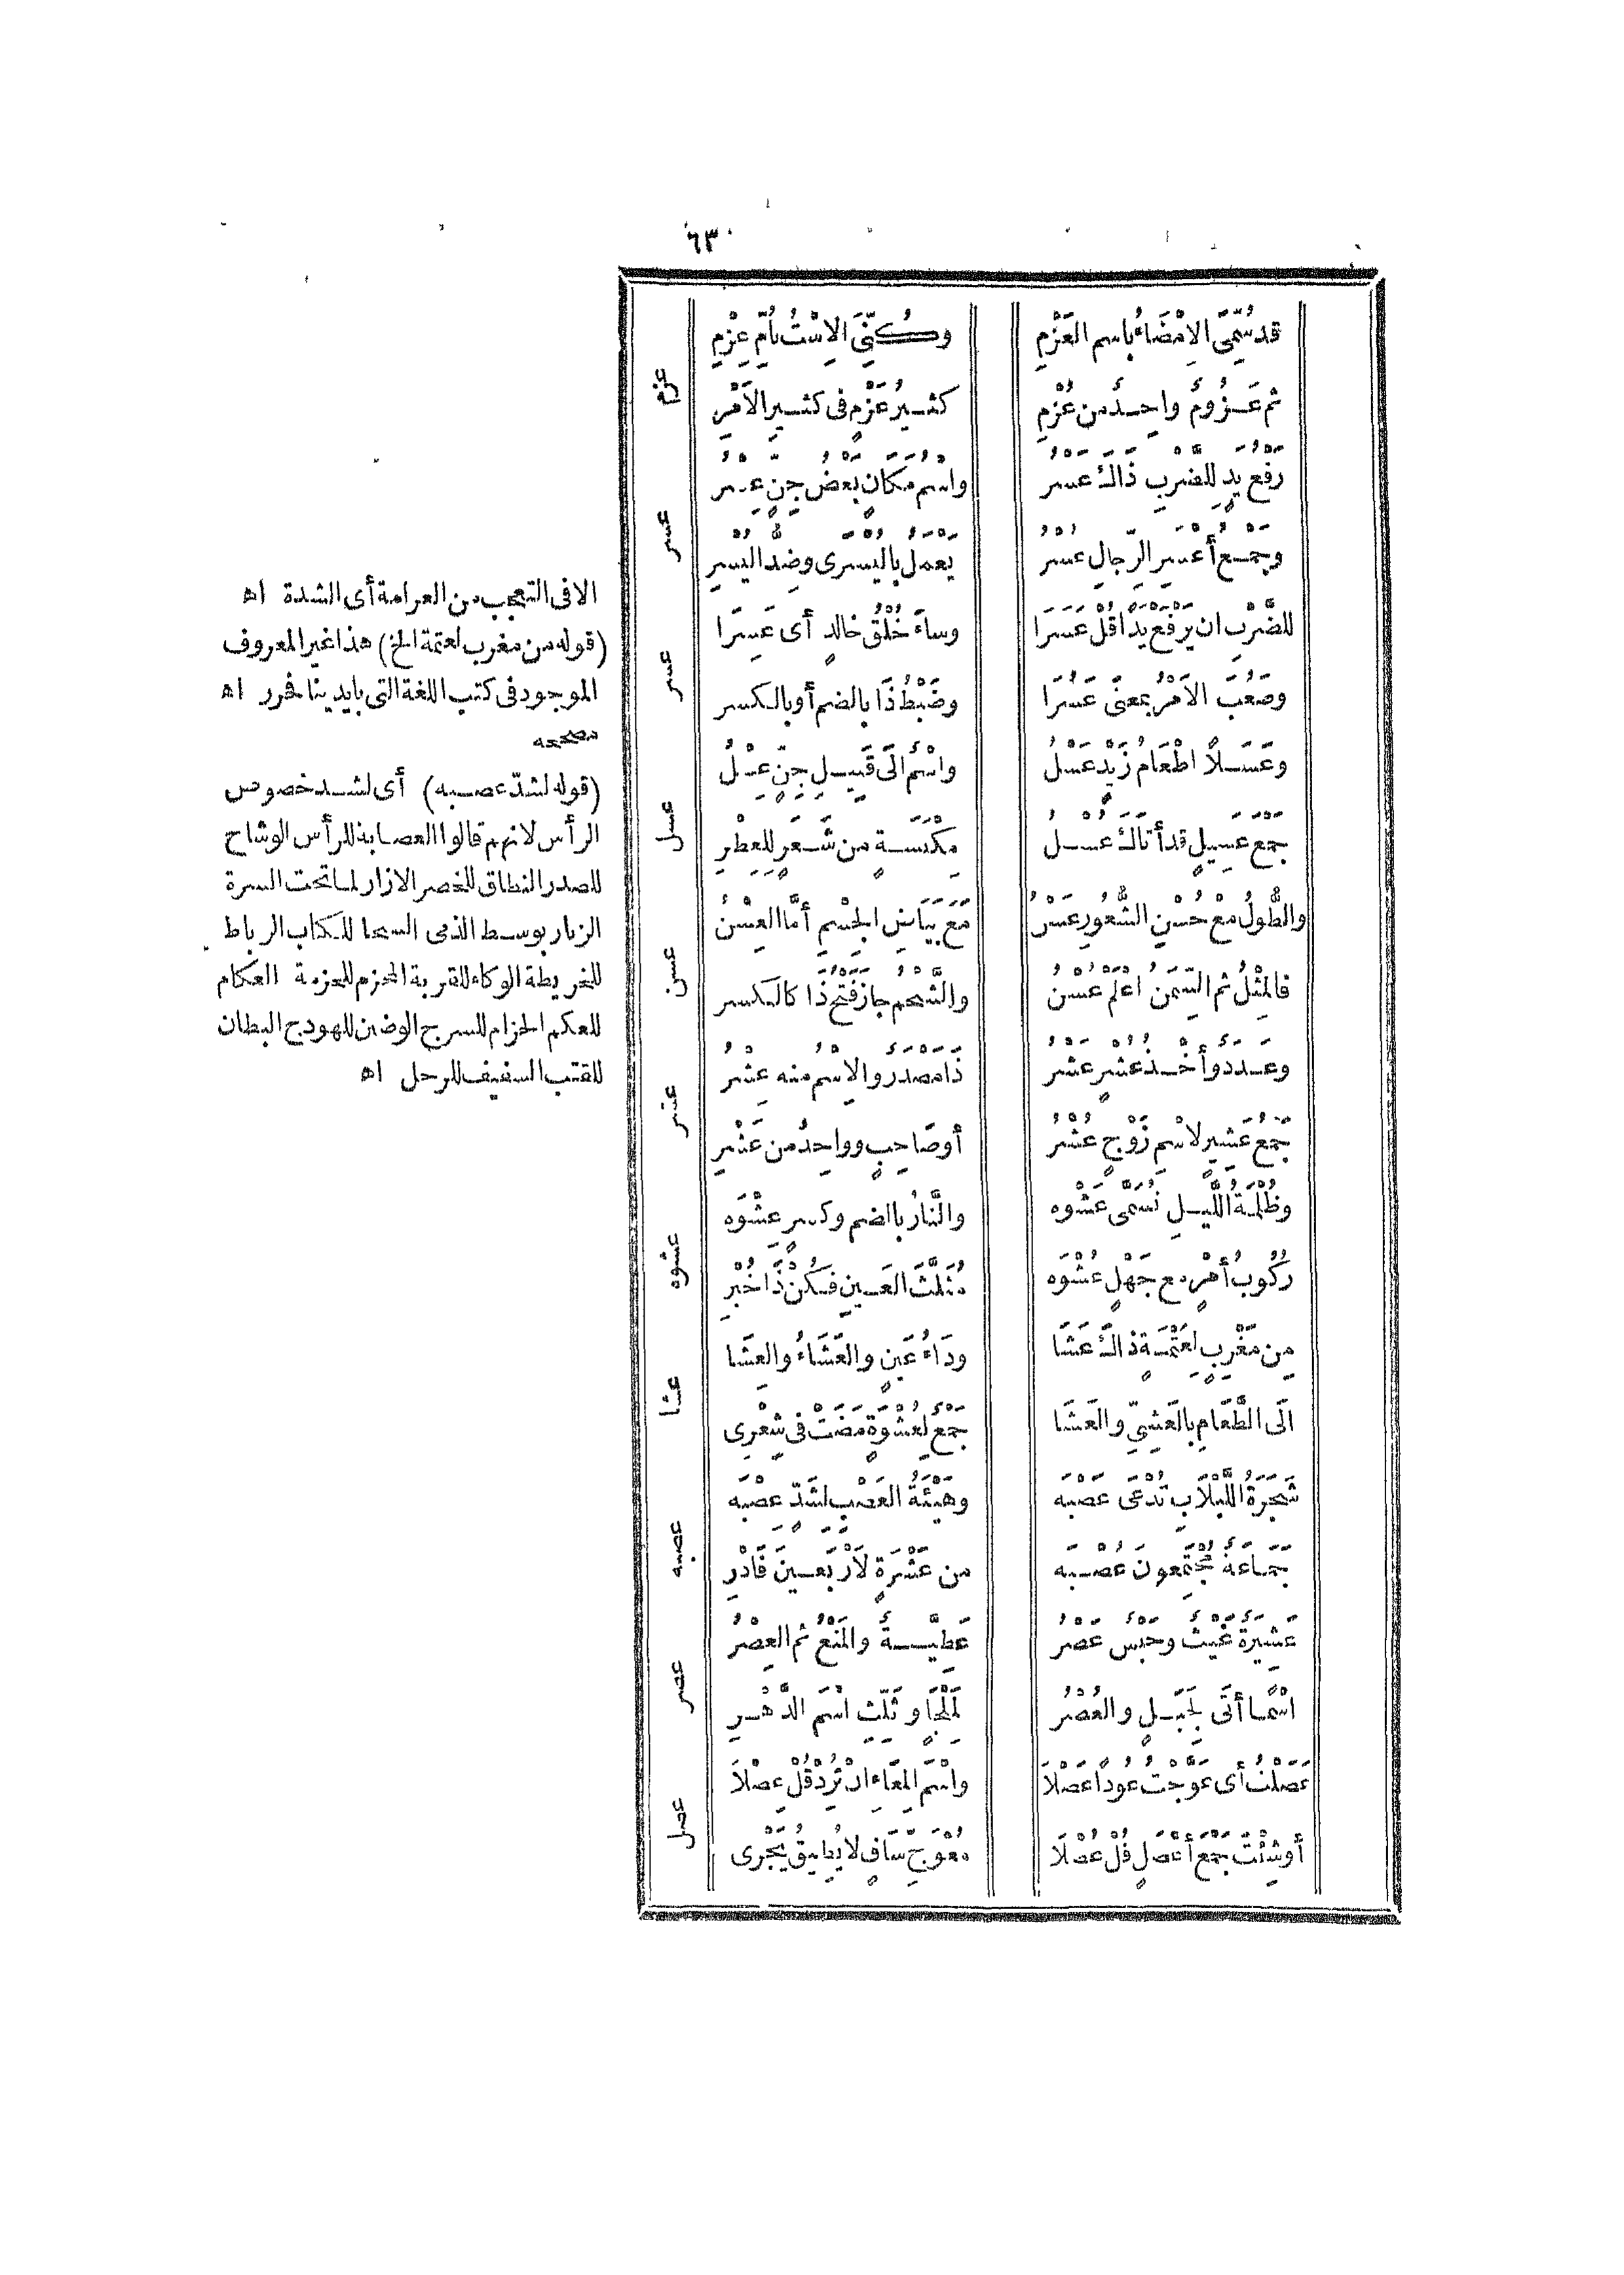 ٦٣
قد سُمِّىَ الاِمْضَاءُ باسم العَزْمِ
وكُنِّىَ الاِسْتُ بأُمِّ عِزْمِ
عزم
ثم عَزُومٌ واحِدٌ من عُزْمِ
كثيرُ عَزْمٍ فى كثيرِ الاَمْرِ
رَفْعُ يدٍ للضَّرْبِ ذَاكَ عَسْرُ
واسمُ مَكَانٍ بَعْضُ جِنٍّ عِسْرُ
عسر
وجَمْعُ أعْسَرِ الرِّجالِ عُسْرُ
يعملُ باليُسْرَى وضِدُّ اليُسْرِ
للضَّرْبِ ان يَرْفَعْ يَدًا قُلْ عَسَرَا
وساءَ خُلْقُ خالدٍ أى عَسِرَا
عسر
وصَعُبَ الاَمْرُ بمعنى عَسُرَا
وضَبْطُ ذَا بالضم أو بالكسر
وعَسَلاً اطْعَامُ زَيْدٍ عَسْلُ
واسْمٌ الَى قَبِيلِ جِنٍّ عِسْلُ
عسل
جمع عَسِيلٍ قد أتاكَ عُسْلُ
مِكْنَسَةٍ من شَعَرٍ للعِطْرِ
والطُّولُ مَعْ حُسْنِ الشُّعُورِ عَسْنُ
مَعَ بَيَاضِ الجِسْمِ أمَّا العِسْنُ
عسن
فالمِثْلُ ثم السِّمَنُ اعْلَمْ عُسْنُ
والشَّحْمُ جازَ فَتْحُ ذَا كالكسر
وعددٌ وأخْذُ عُشْرٍ عَشْرُ
ذَا مَصْدَرٌ والاِسْمُ منه عِشْرُ
عشر
جَمْعُ عَشِيرٍ لاسْمِ زَوْجٍ عُشْرُ
أو صَاحِبٍ وواحِدٌ من عَشْرِ
وظُلْمَةُ اللَّيلِ تُسَمَّى عَشْوَه
والنَّارُ بالضم وكسرٍ عِشْوَه
عشوه
رُكُوبُ أَمْرٍ مع جَهْلٍ عُشْوَه
مُثَلَّثَ العَينِ فَكُنْ ذَا خُبْرِ
مِن مَغْرِبٍ لِعَتْمَةٍ ذاكَ عَشَا
ودَاءُ عَينٍ والعَشَاءُ والعِشَا
عشا
الَى الطَّعَامِ بالعَشِىِّ والعَشَا
جمعٌ لعُشْوَةٍ مَضَتْ فى شِعْرِى
شَجَرَةُ اللَّبْلاَبِ تُدْعَى عَصْبَه
وهَيْئَةُ العَصْبِ لشَدٍّ عِصْبَه
عصبه
جَمَاعَةٌ مُجْتَمِعُونَ عُصْبَه
من عَشْرَةٍ لاَرْبَعينَ فَادْرِ
عَشِيرَةٌ غَيْثٌ وحَبْسٌ عَصْرُ
عَطِيَّةٌ والمَنْعُ ثم العِصْرُ
عصر
اسْمًا أتَى لِجَبَلٍ والعُصْرُ
لِمَلْجَاٍ وثَلِّثِ اسْمَ الدَّهْرِ
عَصَلْتُ أى عَوَّجْتُ عودًا عَصْلاَ
واسْمَ المِعَاءِ ان تُرِدْ قُلْ عِصْلاَ
عصل
أو شِئْتَ جَمْعَ أعْصَلٍ قُلْ عُصْلاَ
مُعْوَجِّ سَاقٍ لا يُطِيقُ يَجْرِى
الا فى التعجب من العرامة أى الشدة اه
(قوله من مغرب لعتمة الخ) هذا غير المعروف
الموجود فى كتب اللغة التى بايدينا فحرر اه
مصححه
(قوله لشدّ عصبه) أى لشد خصوص
الرأس لانهم قالوا العصابة للرأس الوشاح
للصدر النطاق للخصر الازار لما تحت السرة
الزنار بوسط الذمى السحا للكتاب الرباط
للخريطة الوكاء للقربة المحزم للحزمة العكام
للعكم الحزام للسرج الوضين للهودج البطان
للقتب السفيف للرحل اه